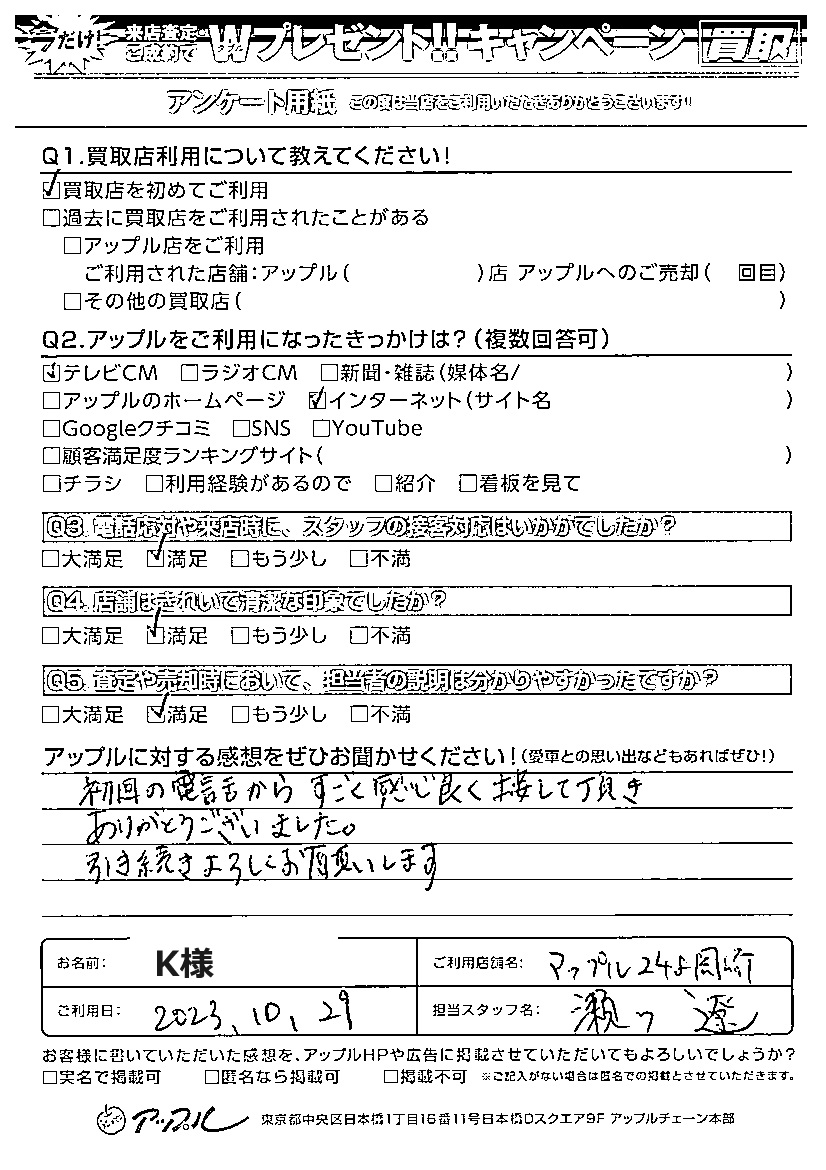 今だけ! 来店査定・ご成約で Wプレゼント!!キャンペーン 買取
アンケート用紙 この度は当店をご利用いただきありがとうございます!!
Q1.買取店利用について教えてください!
☑買取店を初めてご利用
□過去に買取店をご利用されたことがある
□アップル店をご利用
ご利用された店舗:アップル( )店 アップルへのご売却( 回目)
□その他の買取店( )
Q2.アップルをご利用になったきっかけは?(複数回答可)
☑テレビCM □ラジオCM □新聞・雑誌(媒体名/ )
□アップルのホームページ ☑インターネット(サイト名 )
□Googleクチコミ □SNS □YouTube
□顧客満足度ランキングサイト( )
□チラシ □利用経験があるので □紹介 □看板を見て
Q3.電話応対や来店時に、スタッフの接客対応はいかがでしたか?
□大満足 ☑満足 □もう少し □不満
Q4.店舗はきれいで清潔な印象でしたか?
□大満足 ☑満足 □もう少し □不満
Q5.査定や売却時において、担当者の説明は分かりやすかったですか?
□大満足 ☑満足 □もう少し □不満
アップルに対する感想をぜひお聞かせください!(愛車との思い出などもあればぜひ!)
初回の電話からすごく感心良く接して頂き
ありがとうございました。
引き続きよろしくお願いします
お名前: K様 ご利用店舗名: アップル24
ご利用日: 2023.10.29 担当スタッフ名: 瀬
お客様に書いていただいた感想を、アップルHPや広告に掲載させていただいてもよろしいでしょうか?
□実名で掲載可 □匿名なら掲載可 □掲載不可 ※ご記入がない場合は匿名での掲載とさせていただきます。
アップル 東京都中央区日本橋1丁目16番11号日本橋Dスクエア9F アップルチェーン本部